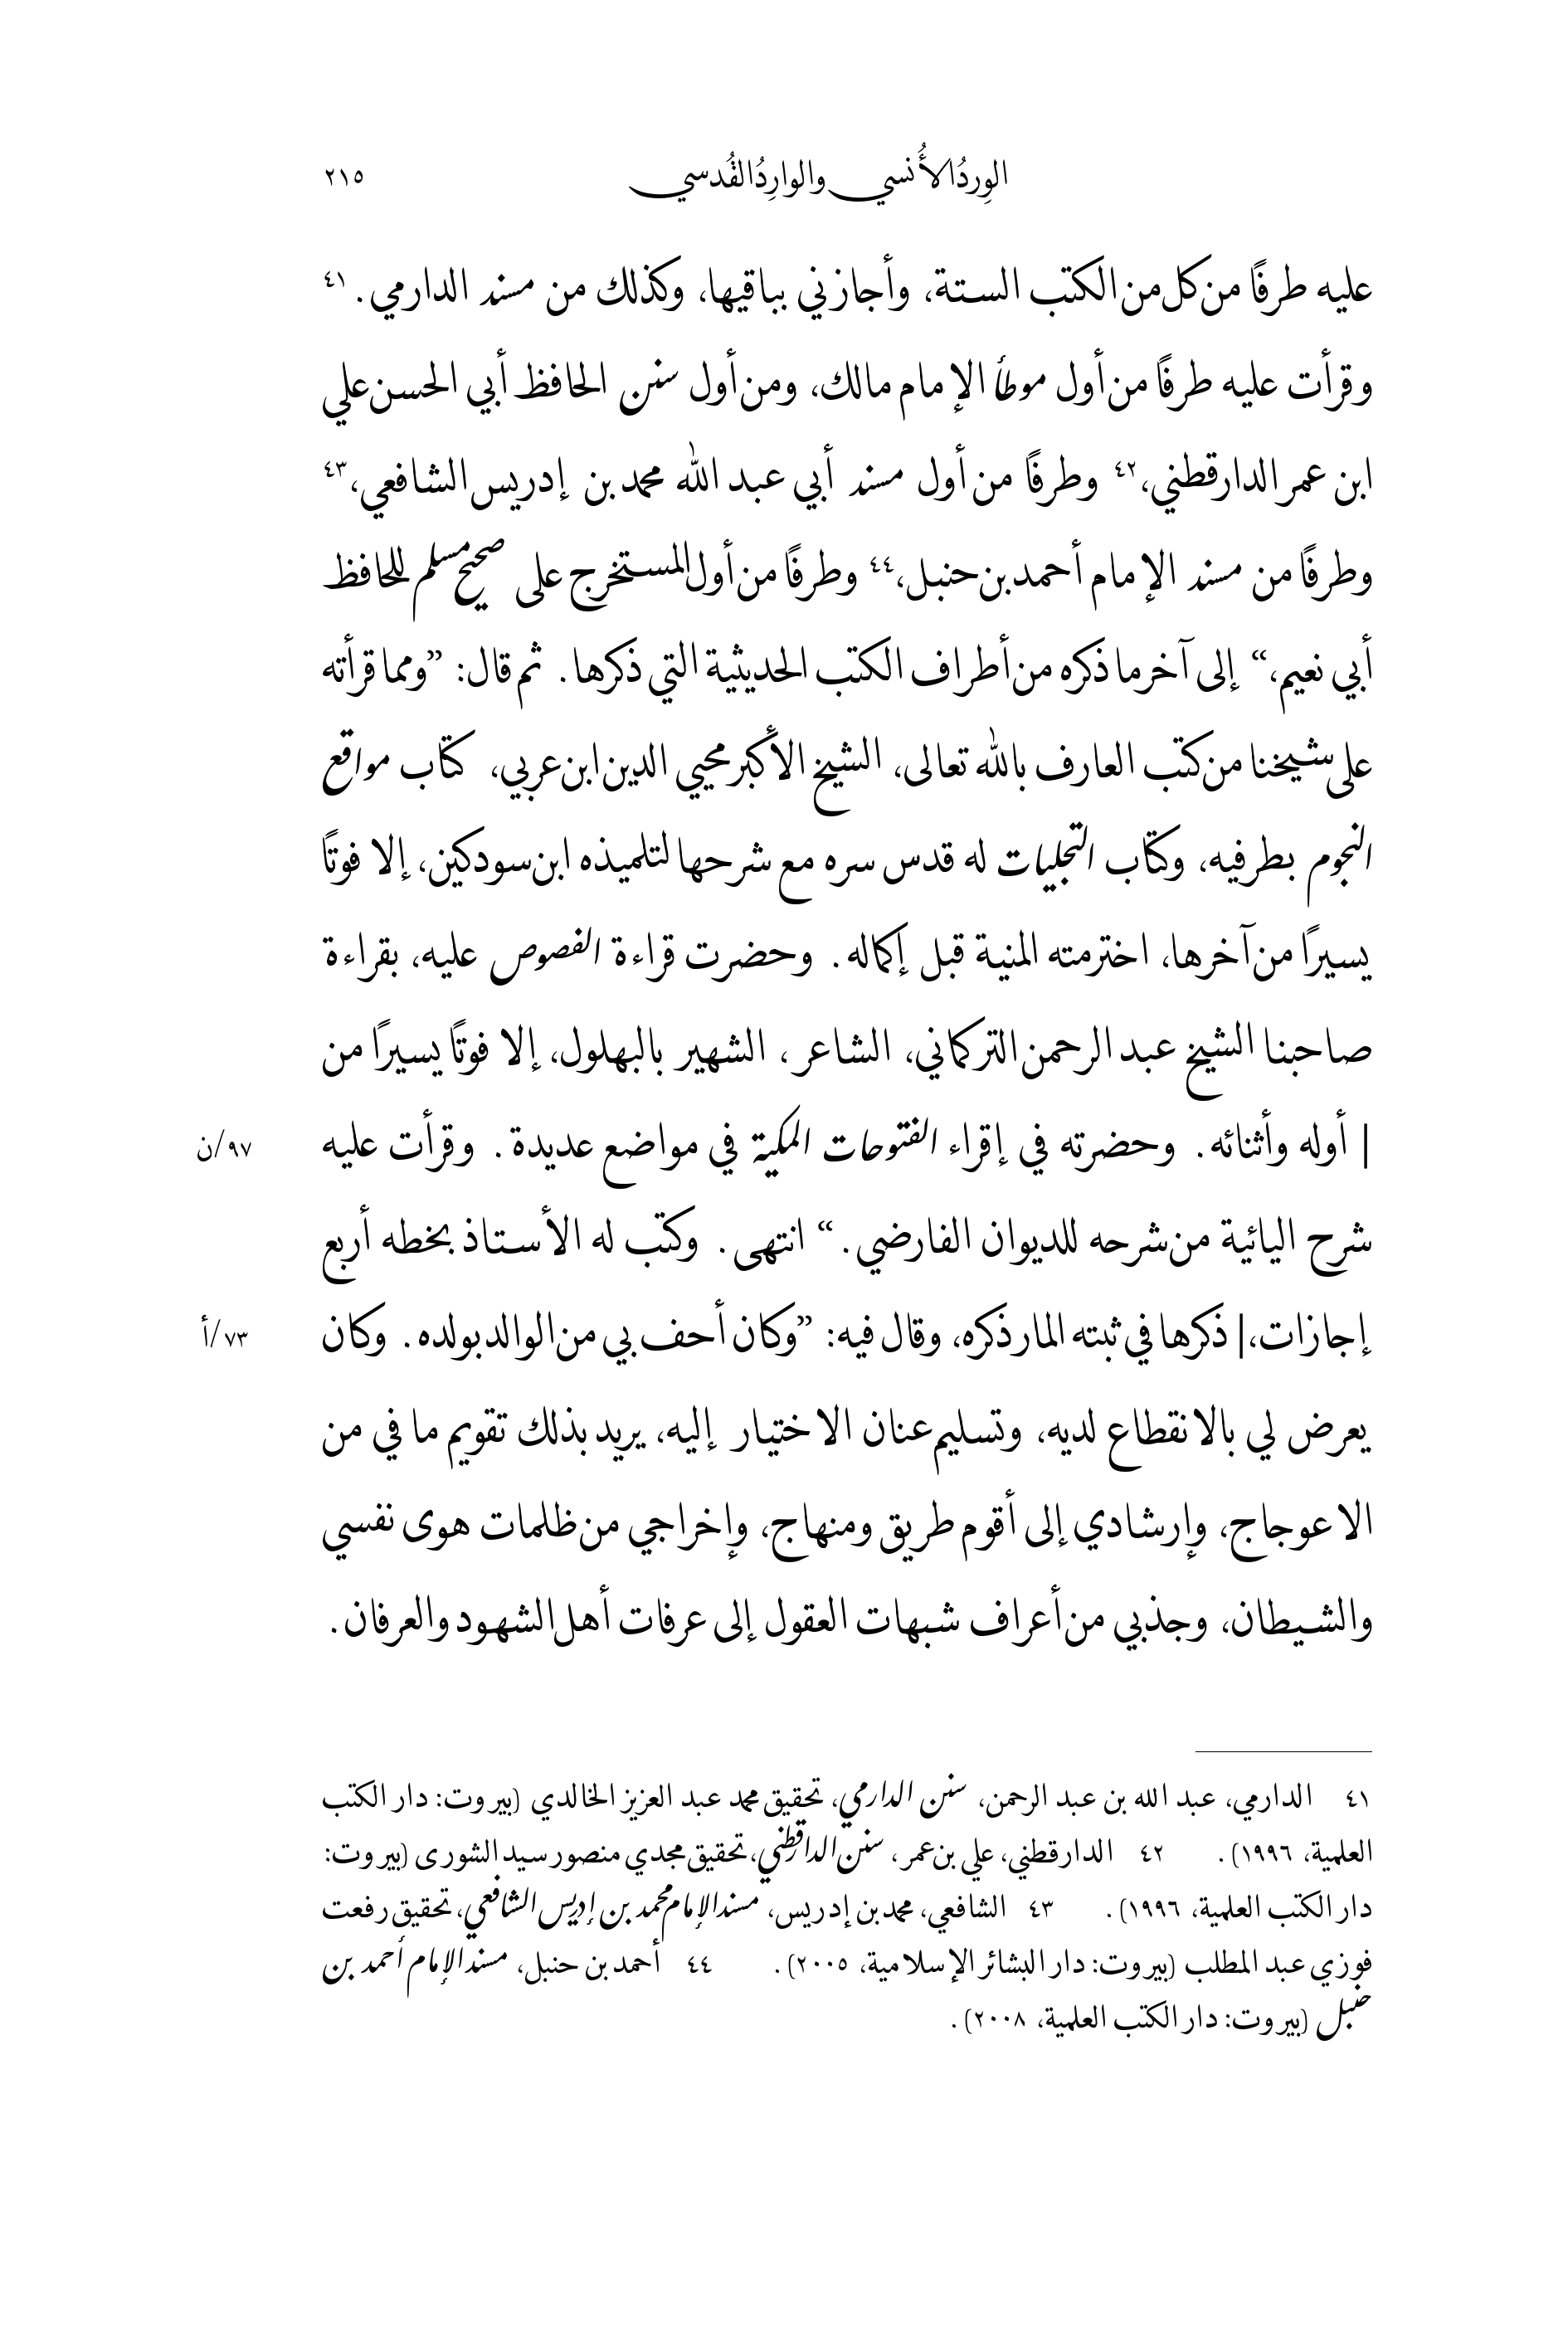 الوِردُ الأُنسي والوارِدُ القُدسي ٢١٥
عليه طرفًا من كل من الكتب الستة، وأجازني بباقيها، وكذلك من مسند الدارمي.٤١
وقرأت عليه طرفًا من أول موطأ الإمام مالك، ومن أول سنن الحافظ أبي الحسن علي
ابن عمر الدارقطني،٤٢ وطرفًا من أول مسند أبي عبد الله محمد بن إدريس الشافعي،٤٣
وطرفًا من مسند الإمام أحمد بن حنبل،٤٤ وطرفًا من أول المستخرج على صحيح مسلم للحافظ
أبي نعيم،“ إلى آخر ما ذكره من أطراف الكتب الحديثية التي ذكرها. ثم قال: ”ومما قرأته
على شيخنا من كتب العارف بالله تعالى، الشيخ الأكبر محيي الدين ابن عربي، كتاب مواقع
النجوم بطرفيه، وكتاب التجليات له قدس سره مع شرحها لتلميذه ابن سودكين، إلا فوتًا
يسيرًا من آخرها، اخترمته المنية قبل إكماله. وحضرت قراءة الفصوص عليه، بقراءة
صاحبنا الشيخ عبد الرحمن التركماني، الشاعر، الشهير بالبهلول، إلا فوتًا يسيرًا من
| أوله وأثنائه. وحضرته في إقراء الفتوحات المكية في مواضع عديدة. وقرأت عليه ٩٧/ن
شرح اليائية من شرحه للديوان الفارضي.“ انتهى. وكتب له الأستاذ بخطه أربع
إجازات،| ذكرها في ثبته المار ذكره، وقال فيه: ”وكان أحف بي من الوالد بولده. وكان ٧٣/أ
يعرض لي بالانقطاع لديه، وتسليم عنان الاختيار إليه، يريد بذلك تقويم ما في من
الاعوجاج، وإرشادي إلى أقوم طريق ومنهاج، وإخراجي من ظلمات هوى نفسي
والشيطان، وجذبي من أعراف شبهات العقول إلى عرفات أهل الشهود والعرفان.
٤١ الدارمي، عبد الله بن عبد الرحمن، سنن الدارمي، تحقيق محمد عبد العزيز الخالدي (بيروت: دار الكتب
العلمية، ١٩٩٦). ٤٢ الدارقطني، علي بن عمر، سنن الدارقطني، تحقيق مجدي منصور سيد الشورى (بيروت:
دار الكتب العلمية، ١٩٩٦). ٤٣ الشافعي، محمد بن إدريس، مسند الإمام محمد بن إدريس الشافعي، تحقيق رفعت
فوزي عبد المطلب (بيروت: دار البشائر الإسلامية، ٢٠٠٥). ٤٤ أحمد بن حنبل، مسند الإمام أحمد بن
حنبل (بيروت: دار الكتب العلمية، ٢٠٠٨).